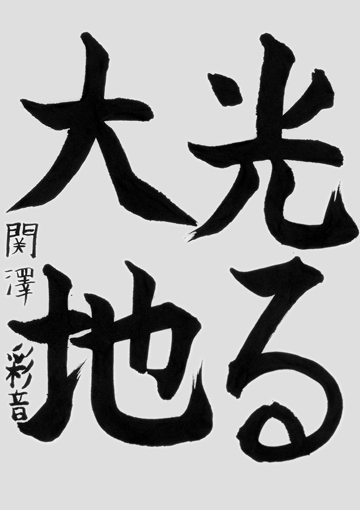 光る
大地
関澤彩音